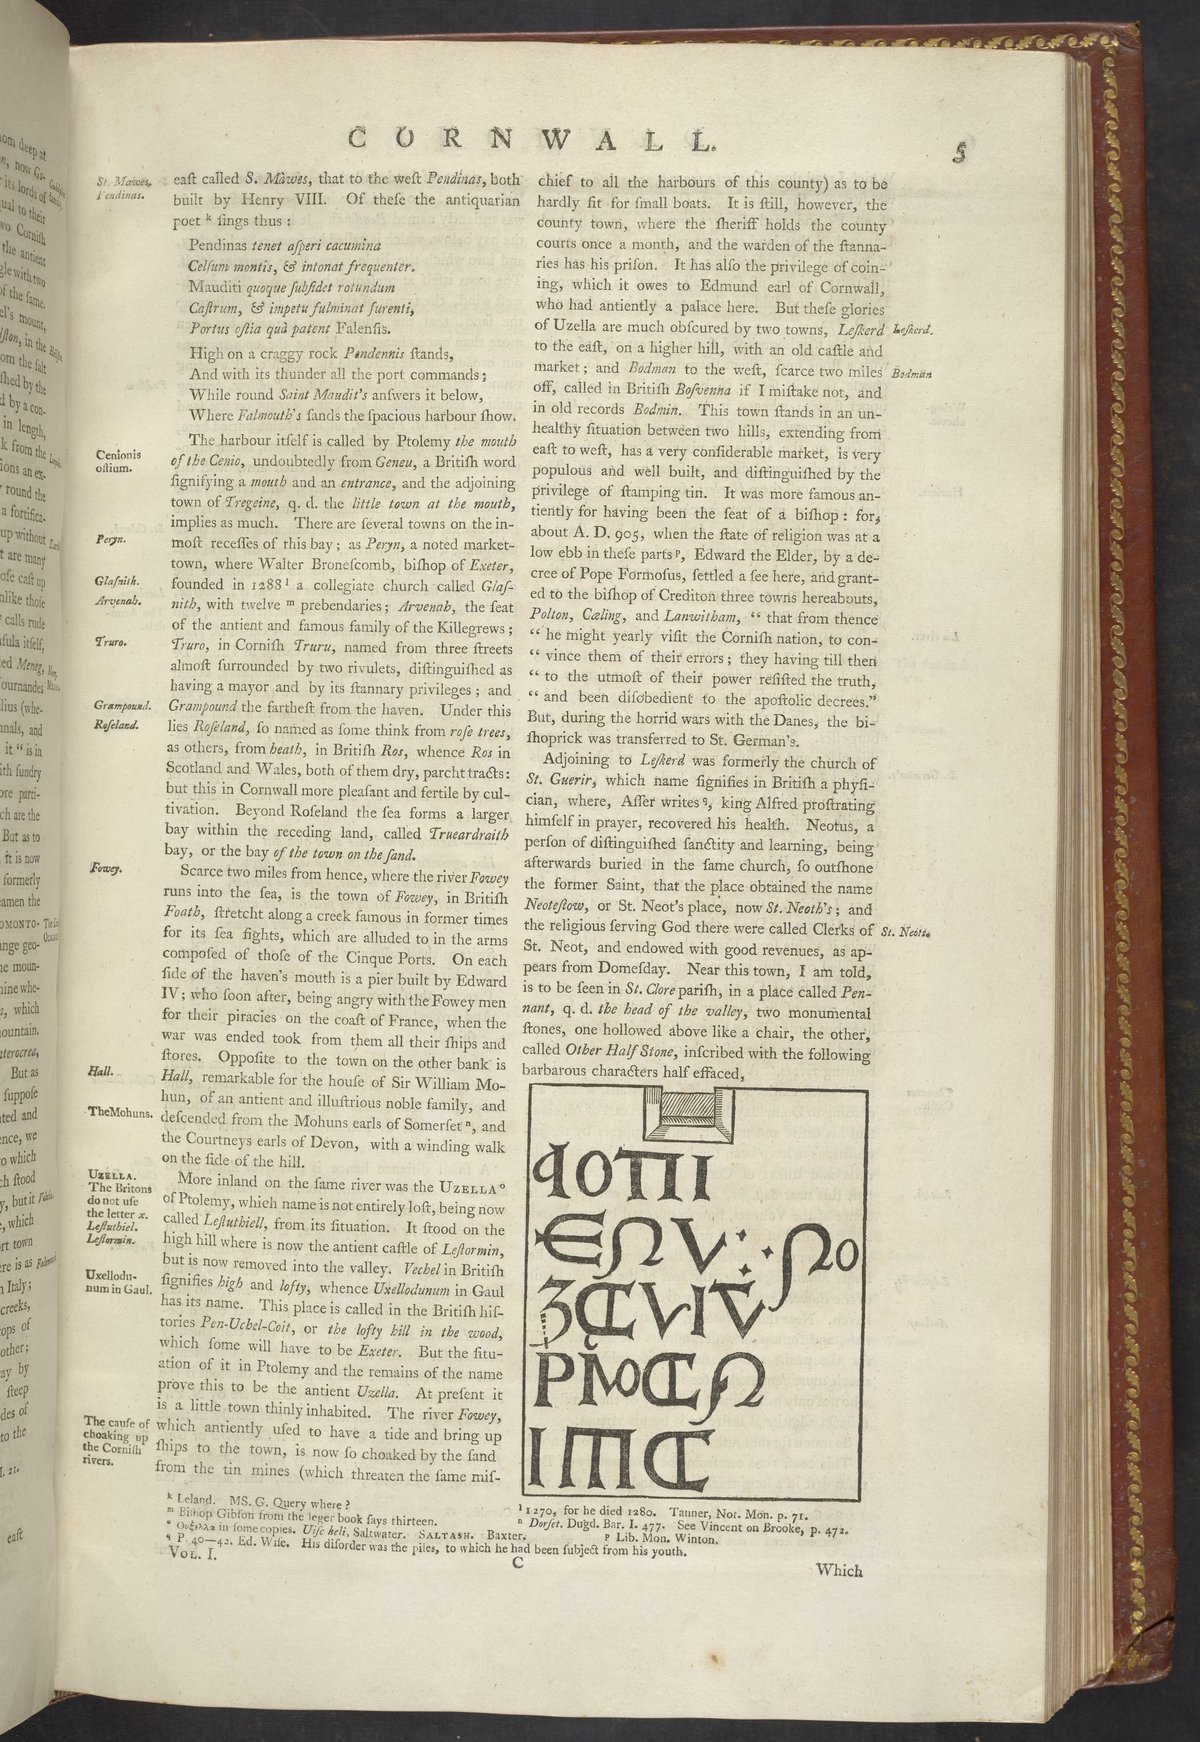 CORNWALL.
5
St. Mawes,
Pendinas.
eaſt called S. Mawes, that to the weſt Pendinas, both
built by Henry VIII. Of theſe the antiquarian
poet k ſings thus :
Pendinas tenet aſperi cacumina
Celſum montis, & intonat frequenter.
Mauditi quoque ſubſidet rotundum
Caſtrum, & impetu fulminat furenti,
Portus oſtia quà patent Falenſis.
High on a craggy rock Pendennis ſtands,
And with its thunder all the port commands ;
While round Saint Maudit's anſwers it below,
Where Falmouth's ſands the ſpacious harbour ſhow.
Cenionis
oſtium.
The harbour itſelf is called by Ptolemy the mouth
of the Cenio, undoubtedly from Geneu, a Britiſh word
ſignifying a mouth and an entrance, and the adjoining
town of Tregeine, q. d. the little town at the mouth,
implies as much. There are ſeveral towns on the in-
Peryn.
moſt receſſes of this bay ; as Peryn, a noted market-
town, where Walter Broneſcomb, biſhop of Exeter,
Glaſnith.
founded in 1288 l a collegiate church called Glaſ-
Arvenah.
nith, with twelve m prebendaries ; Arvenah, the ſeat
of the antient and famous family of the Killegrews ;
Truro.
Truro, in Corniſh Truru, named from three ſtreets
almoſt ſurrounded by two rivulets, diſtinguiſhed as
having a mayor and by its ſtannary privileges ; and
Grampound.
Grampound the fartheſt from the haven. Under this
Roſeland.
lies Roſeland, ſo named as ſome think from roſe trees,
as others, from heath, in Britiſh Ros, whence Ros in
Scotland and Wales, both of them dry, parcht tracts :
but this in Cornwall more pleaſant and fertile by cul-
tivation. Beyond Roſeland the ſea forms a larger
bay within the receding land, called Trueardraith
bay, or the bay of the town on the ſand.
Fowey.
Scarce two miles from hence, where the river Fowey
runs into the ſea, is the town of Fowey, in Britiſh
Foath, ſtretcht along a creek famous in former times
for its ſea fights, which are alluded to in the arms
compoſed of thoſe of the Cinque Ports. On each
ſide of the haven's mouth is a pier built by Edward
IV ; who ſoon after, being angry with the Fowey men
for their piracies on the coaſt of France, when the
war was ended took from them all their ſhips and
ſtores. Oppoſite to the town on the other bank is
Hall.
Hall, remarkable for the houſe of Sir William Mo-
hun, of an antient and illuſtrious noble family, and
The Mohuns.
deſcended from the Mohuns earls of Somerſet n, and
the Courtneys earls of Devon, with a winding walk
on the ſide of the hill.
Uzella.
The Britons
do not uſe
the letter x.
Leſtuthiel.
Leſtormin.
More inland on the ſame river was the Uzella o
of Ptolemy, which name is not entirely loſt, being now
called Leſtuthiell, from its ſituation. It ſtood on the
high hill where is now the antient caſtle of Leſtormin,
but is now removed into the valley. Vechel in Britiſh
Uxellodu-
num in Gaul.
ſignifies high and lofty, whence Uxellodunum in Gaul
has its name. This place is called in the Britiſh hiſ-
tories Pen-Uchel-Coit, or the lofty hill in the wood,
which ſome will have to be Exeter. But the ſitu-
ation of it in Ptolemy and the remains of the name
prove this to be the antient Uzella. At preſent it
is a little town thinly inhabited. The river Fowey,
The cauſe of
choaking up
the Corniſh
rivers.
which antiently uſed to have a tide and bring up
ſhips to the town, is now ſo choaked by the ſand
from the tin mines (which threaten the ſame miſ-
chief to all the harbours of this county) as to be
hardly fit for ſmall boats. It is ſtill, however, the
county town, where the ſheriff holds the county
courts once a month, and the warden of the ſtanna-
ries has his priſon. It has alſo the privilege of coin-
ing, which it owes to Edmund earl of Cornwall,
who had antiently a palace here. But theſe glories
of Uzella are much obſcured by two towns, Leſkerd
Leſkerd.
to the eaſt, on a higher hill, with an old caſtle and
market ; and Bodman to the weſt, ſcarce two miles
Bodman
off, called in Britiſh Boſvenna if I miſtake not, and
in old records Bodmin. This town ſtands in an un-
healthy ſituation between two hills, extending from
eaſt to weſt, has a very conſiderable market, is very
populous and well built, and diſtinguiſhed by the
privilege of ſtamping tin. It was more famous an-
tiently for having been the ſeat of a biſhop : for,
about A. D. 905, when the ſtate of religion was at a
low ebb in theſe parts p, Edward the Elder, by a de-
cree of Pope Formoſus, ſettled a ſee here, and grant-
ed to the biſhop of Crediton three towns hereabouts,
Polton, Cæling, and Lanwitham, “ that from thence
“ he might yearly viſit the Corniſh nation, to con-
“ vince them of their errors ; they having till then
“ to the utmoſt of their power reſiſted the truth,
“ and been diſobedient to the apoſtolic decrees.”
But, during the horrid wars with the Danes, the bi-
ſhoprick was transferred to St. German's.
Adjoining to Leſkerd was formerly the church of
St. Guerir, which name ſignifies in Britiſh a phyſi-
cian, where, Aſſer writes q, king Alfred proſtrating
himſelf in prayer, recovered his health. Neotus, a
perſon of diſtinguiſhed ſanctity and learning, being
afterwards buried in the ſame church, ſo outſhone
the former Saint, that the place obtained the name
Neoteſtow, or St. Neot's place, now St. Neoth's ; and
the religious ſerving God there were called Clerks of
St. Neots.
St. Neot, and endowed with good revenues, as ap-
pears from Domeſday. Near this town, I am told,
is to be ſeen in St. Clore pariſh, in a place called Pen-
nant, q. d. the head of the valley, two monumental
ſtones, one hollowed above like a chair, the other,
called Other Half Stone, inſcribed with the following
barbarous characters half effaced,
k Leland. MS. G. Query where ?
l 1270, for he died 1280. Tanner, Not. Mon. p. 71.
m Biſhop Gibſon from the leger book ſays thirteen.
n Dorſet. Dugd. Bar. I. 477. See Vincent on Brooke, p. 472.
o Ουξελλα in ſome copies. Uiſc heli, Saltwater. SALTASH. Baxter.
p Lib. Mon. Winton.
q P. 40—42. Ed. Wiſe. His diſorder was the piles, to which he had been ſubject from his youth.
VOL. I.
C
Which